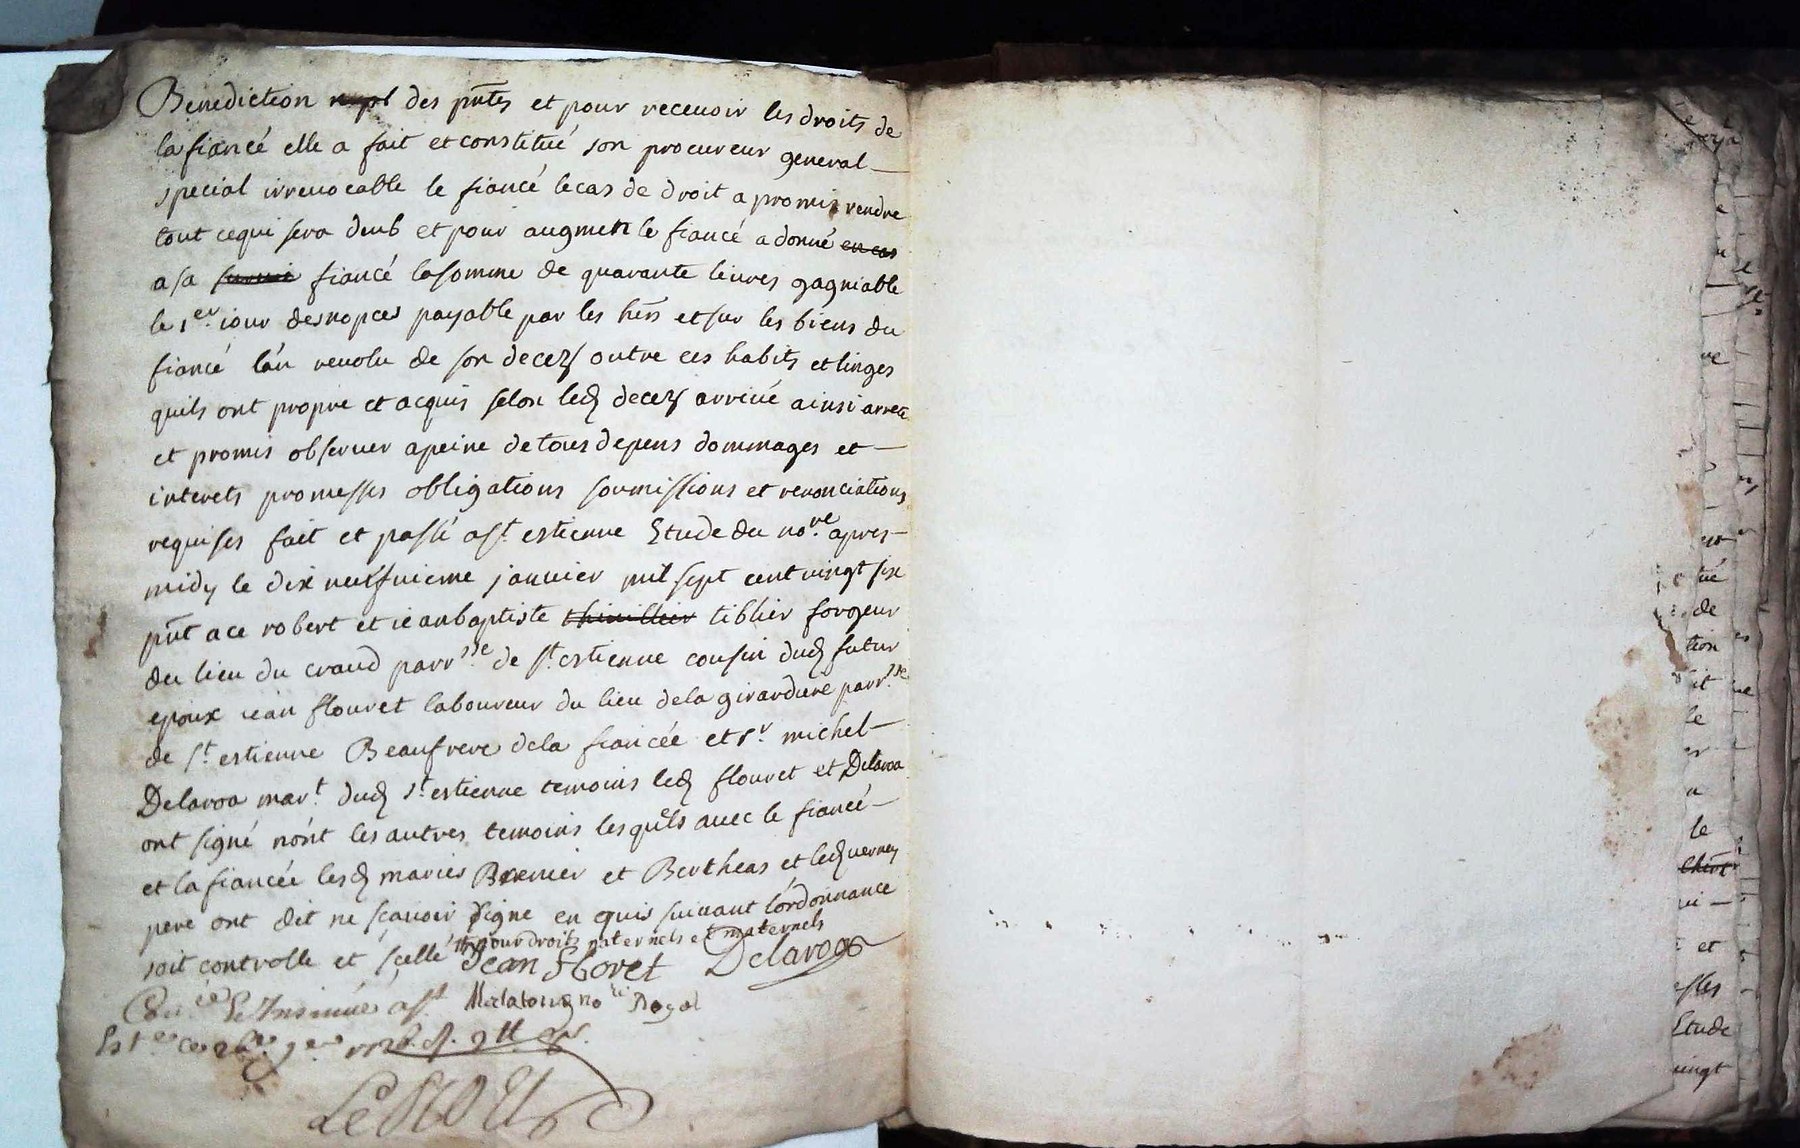 Benediction des pntes et pour recevoir les droits de
la fiancé elle a fait et constitué son procureur general
special irrevocable le fiancé le cas de droit a promis rendre
tout cequi sera deub et pour augment le fiancé a donné en cas
a sa survie fiancé la somme de quarante livres gagniable
le 1er iour desnopces payable par les hers et sur les biens du
fiancé l'an revolu de son decez outre ces habits et linges
quils ont propre et acquis selon led decez arrivé ainsi arreté
et promis observer a peine de tous depens dommages et
interets promesses obligations soumissions et renonciations
requises fait et passé a st estienne Etude du nore apres
midy le dix neufvieme janvier mil sept cent vingt six
pnt a ce robert et iean baptiste tiblier forgeur
du lieu du craud parrsse de st estienne cousin dud futur
epoux iean flouret laboureur du lieu dela girardiere parrsse
de st estienne Beaufrere dela fiancée et sr michel
Delaroa mart dud st estienne temoins led flouret et Delaroa
ont signé nont les autres temoins lesquels avec le fiancé
et la fiancée lesd mariés et Bertheas et led verney
pere ont dit ne scavoir signe enquis suivant l'ordonnance
soit controlle et scellé pour droits paternels et maternels
Jean floret Delaroa
Con. et Insinué a st no re Royal
Est ce